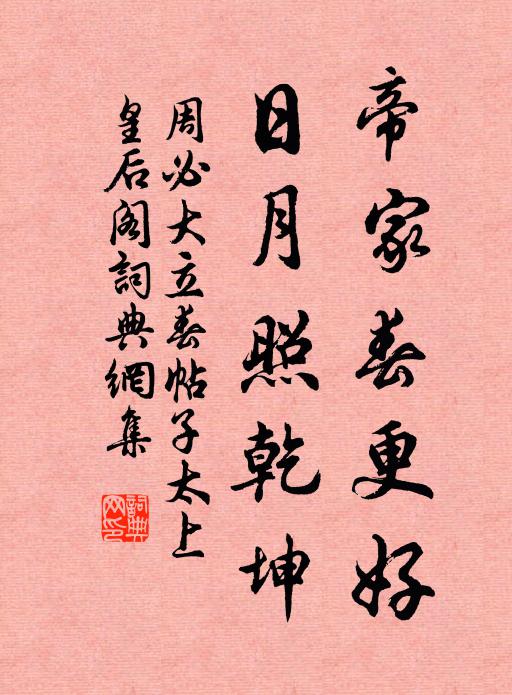 帝家春更好
日月照乾坤
周必大立春帖子太上
皇后阁詞典網集
詞典网印